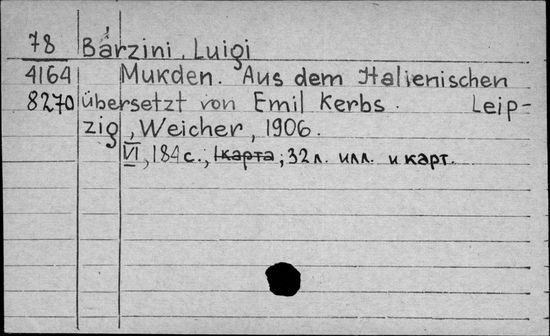 78 Barzini, Luigi
4164 Mukden. Aus dem Italienischen
8270 übersetzt von Emil Kerbs. Leip-
zig, Weicher, 1906.
VI, 184 с., 1 карта; 32 л. илл. и карт.